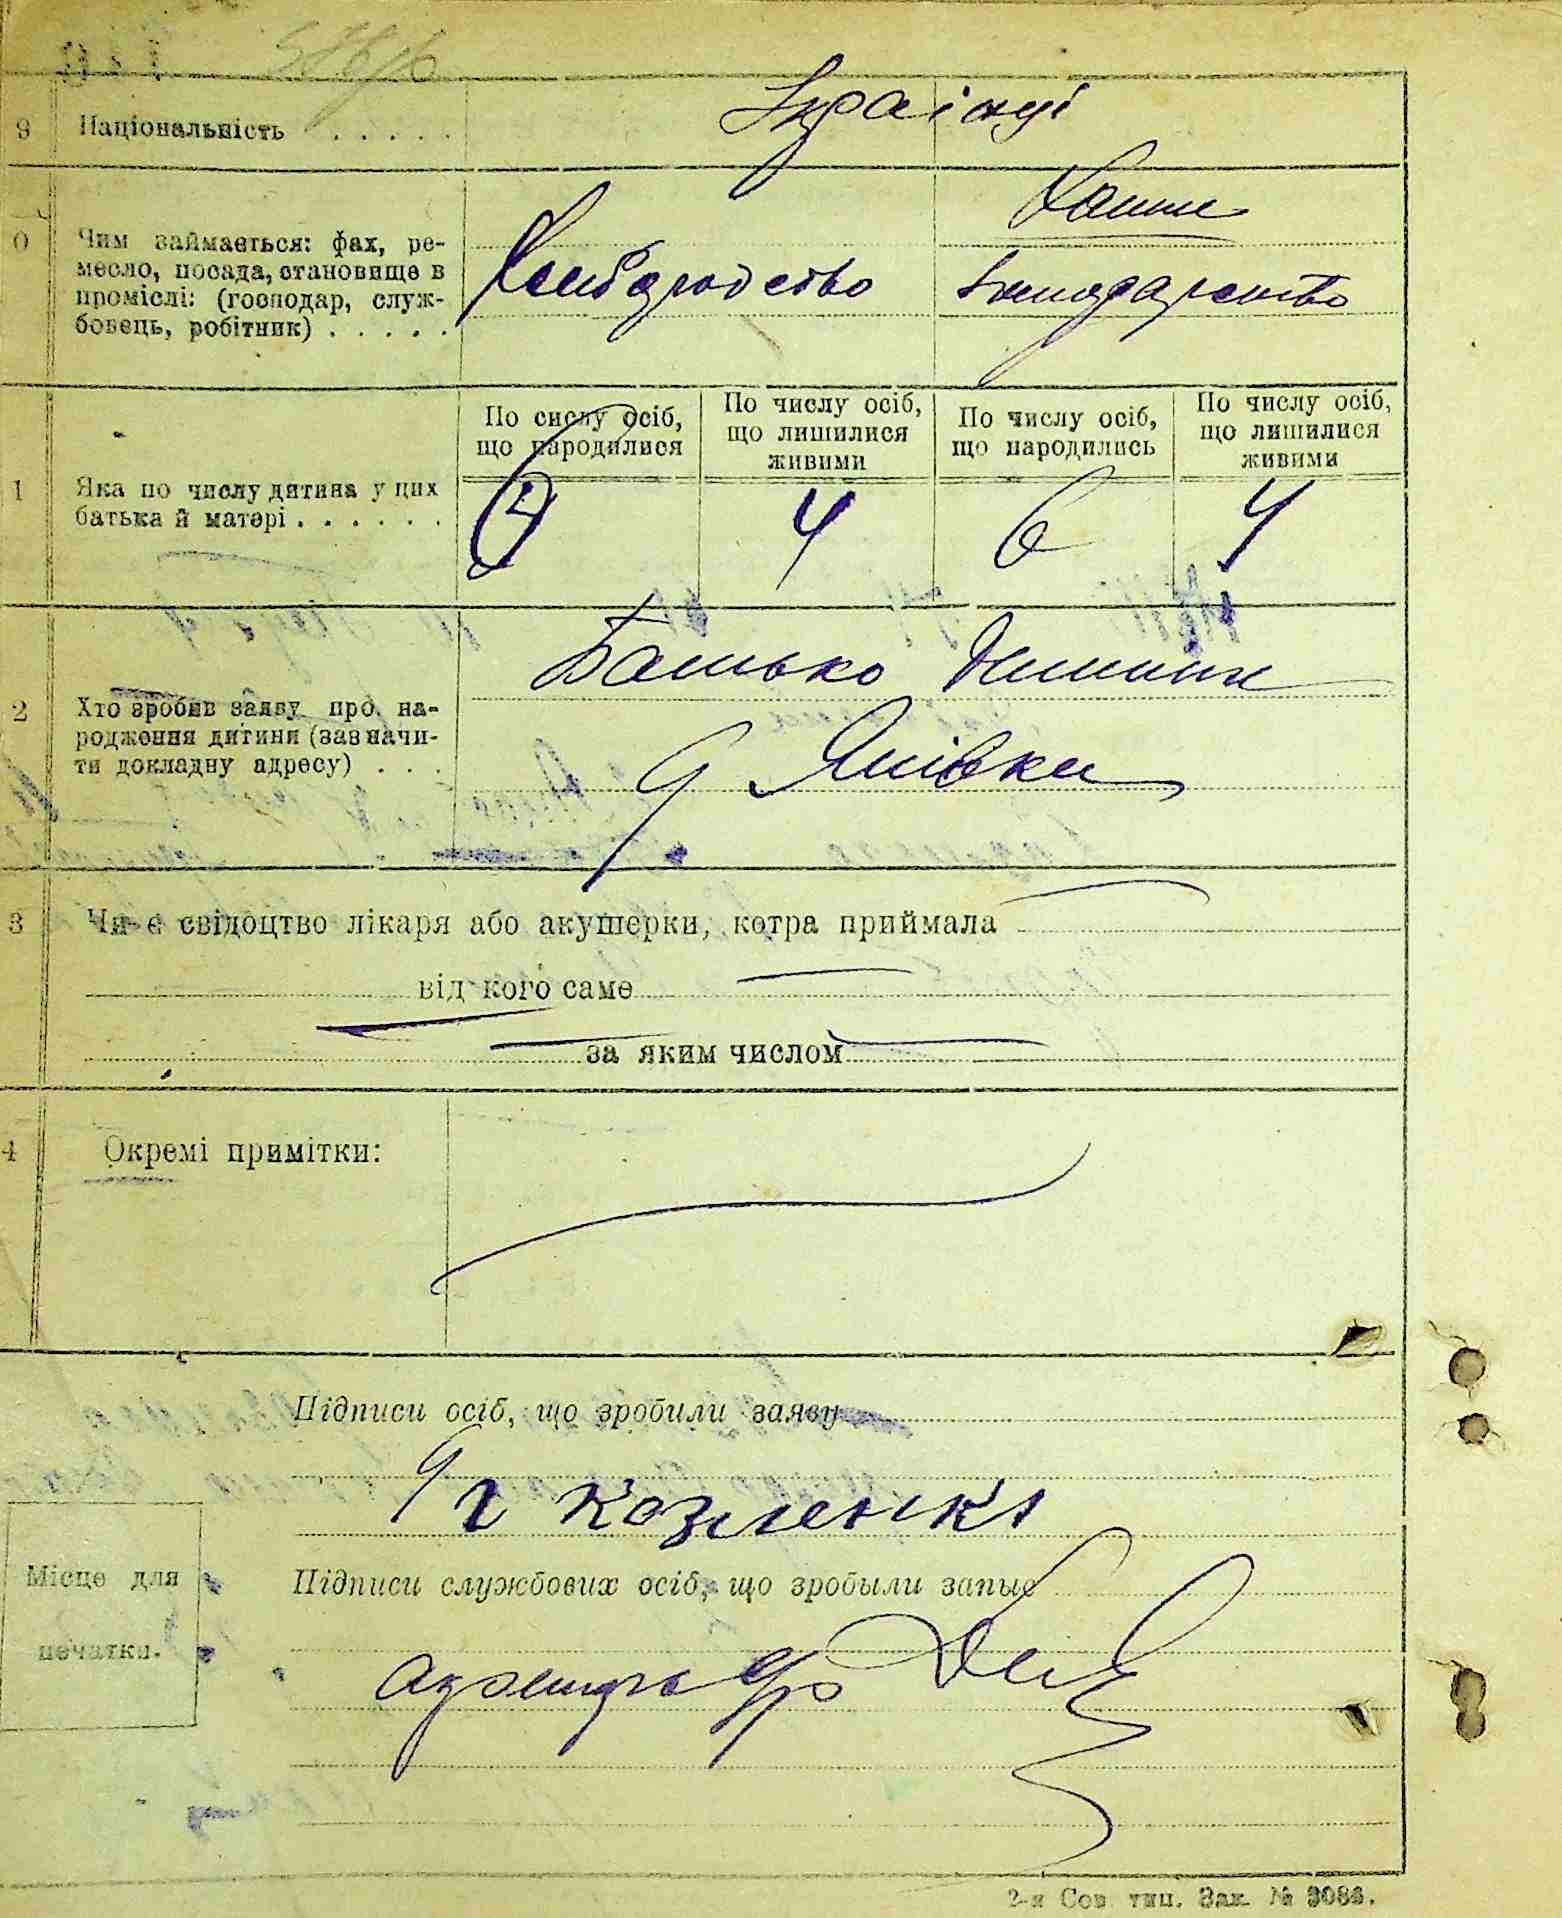 9 Національність . . . . .
Українці
0 Чим займається: фах, ре-
месло, посада, становище в
проміслі: (господар, служ-
бовець, робітник) . . . . .
Хліборобство
Домашн
господарство
1 Яка по числу дитина у цих
батька й матері . . . . . .
По числу осіб,
що народилися
По числу осіб,
що лишилися
живими
По числу осіб,
що народились
По числу осіб,
що лишилися
живими
4 4 6 4
2 Хто зробив заяву про на-
родження дитини (зазначи-
ти докладну адресу) . . .
Батько дитини
3 Чи є свідоцтво лікаря або акушерки, котра приймала
від кого саме
за яким числом
4 Окремі примітки:
Підписи осіб, що зробили заяву
Підписи службових осіб, що зробыли запыс
Місце для
печатки.
2-я Сов тип. Зак. № 3086.